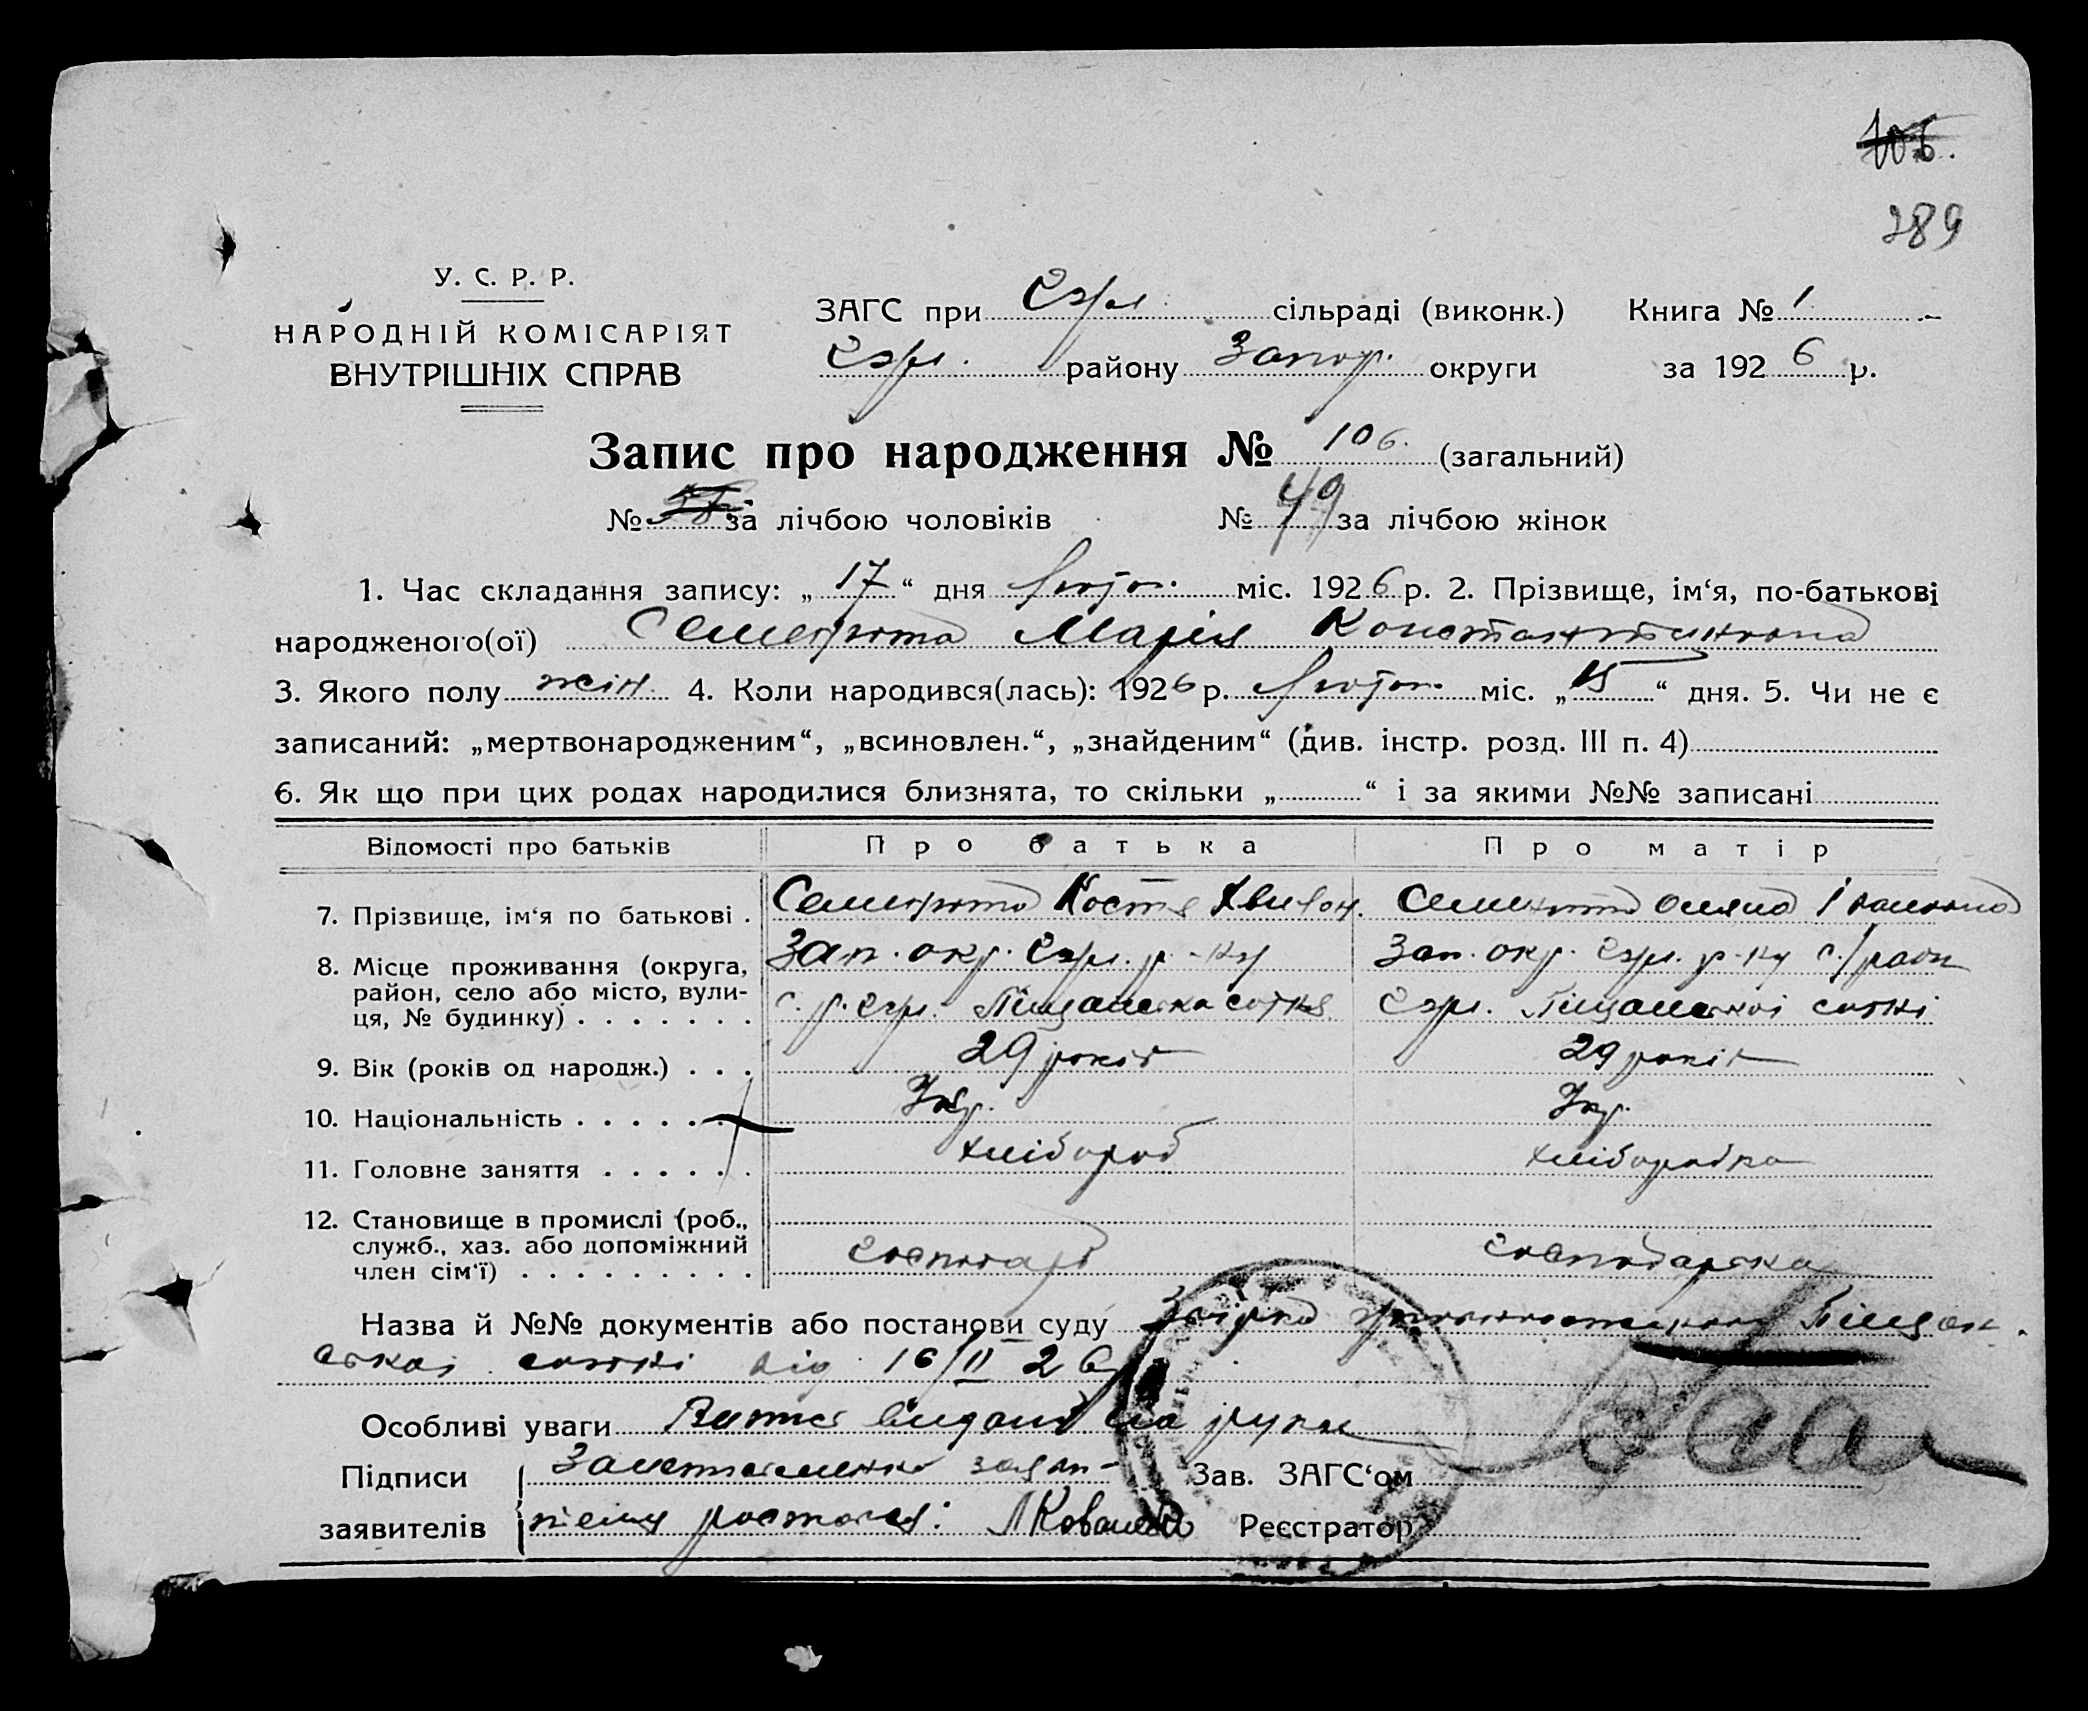 106.
289
У. С. Р. Р.
НАРОДНІЙ КОМІСАРІЯТ
ВНУТРІШНІХ СПРАВ
ЗАГС при сільраді (виконк.) Книга № 1
району Запор. округи за 1926 р.
Запис про народження № 106. (загальний)
№ за лічбою чоловіків № 49 за лічбою жінок
1. Час складання запису: „17“ дня Лютог. міс. 1926 р. 2. Прізвище, ім‘я, по-батькові
народженого(ої) Марія Константиновна
3. Якого полу жін. 4. Коли народився(лась): 1926 р. Лютог. міс. „15“ дня. 5. Чи не є
записаний: „мертвонародженим“, „всиновлен.“, „знайденим“ (див. інстр. розд. III п. 4)
6. Як що при цих родах народилися близнята, то скільки „ “ і за якими №№ записані
Відомості про батьків Про батька Про матір
7. Прізвище, ім‘я по батькові . Костя
8. Місце проживання (округа, Зап. окр. р-ну Зап. окр. р-ну с/ради
район, село або місто, вули-
ця, № будинку) . . . . . . . с. р. Піщанська сотня Піщанської сотні
9. Вік (років од народж.) . . . 29 років 29 років
10. Національність . . . . . . Укр. Укр.
11. Головне заняття . . . . . . хлібороб хліборобка
12. Становище в промислі (роб.,
служб., хаз. або допоміжний
член сім‘ї) . . . . . . . . . господарь господарка
Назва й №№ документів або постанови суду Піщан.
ської сотні від 16/II 26
Особливі уваги Витяг видано на руки
Підписи Зав. ЗАГС‘ом
заявителів Реєстратор